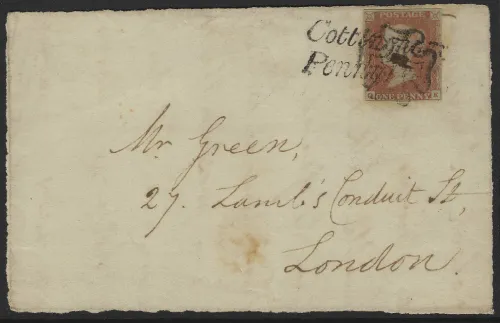 POSTAGE
Penny
ONE PENNY
Mr. Green,
27. Lamb's Conduit St,
London.